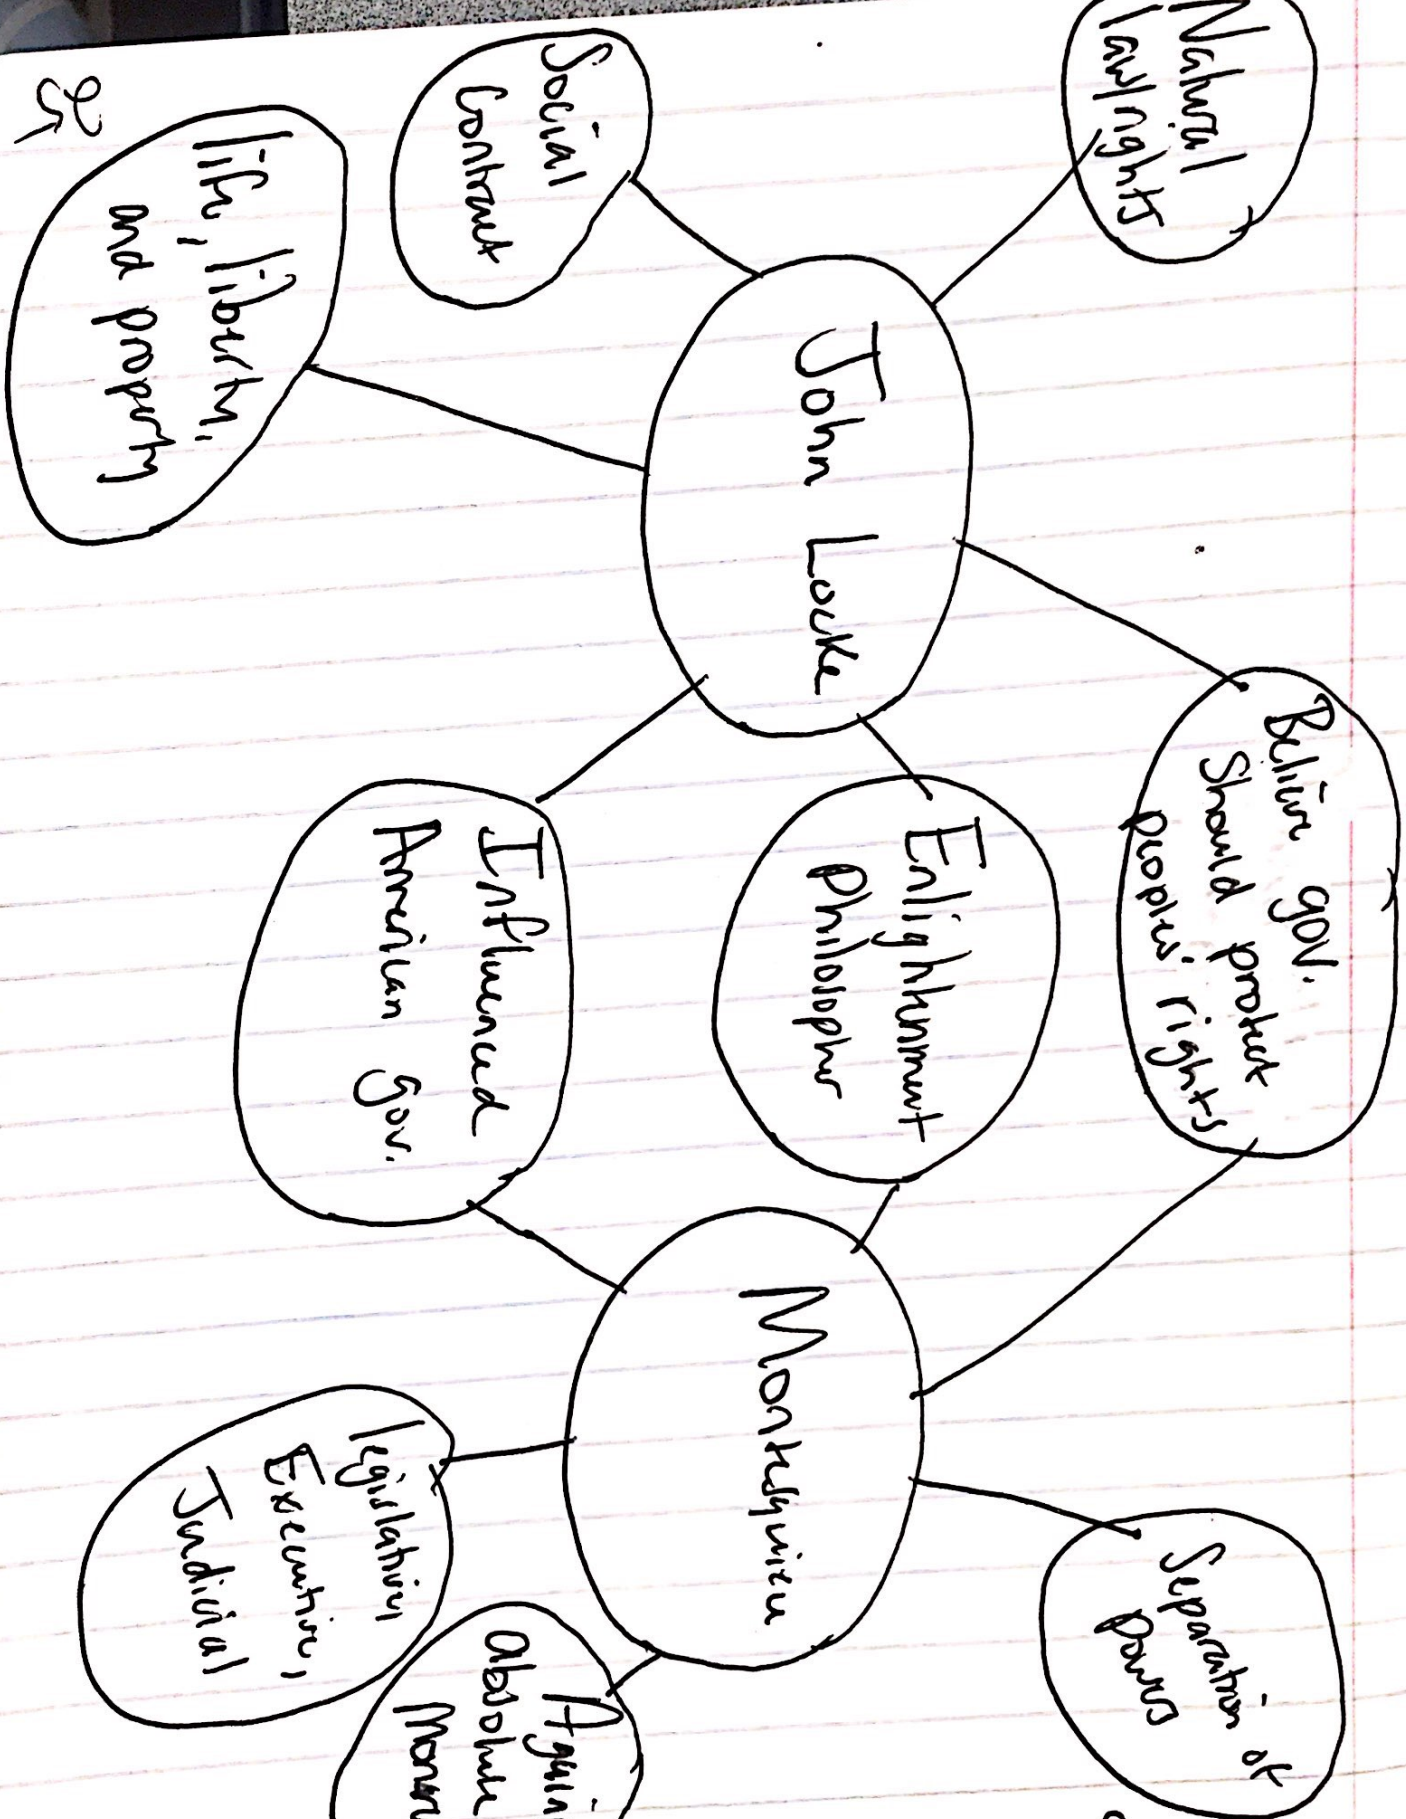 Natural
law/rights
Social
Contract
life, liberty,
and property
John Locke
Believe gov.
Should protect
peoples' rights
Enlightenment
Philosopher
Influenced
American gov.
Montesquieu
Separation of
powers
legislative,
Executive,
Judicial
absolute